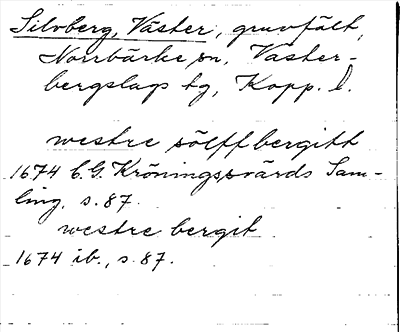 Silvberg, Väster, gruvfält,
Norrbärke sn, Väster-
bergslags tg, Kopp. l.
westre sölffbergitt
1674 C. G. Kröningssvärds Sam-
ling, s. 87.
westre bergit
1674 ib., s. 87.